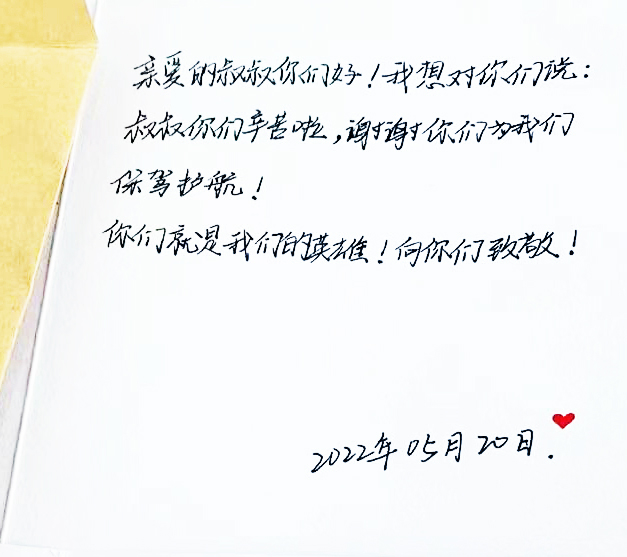 亲爱的叔叔你们好！我想对你们说：
叔叔你们辛苦啦，谢谢你们为我们
保驾护航！
你们就是我们的英雄！向你们致敬！
2022年05月20日.